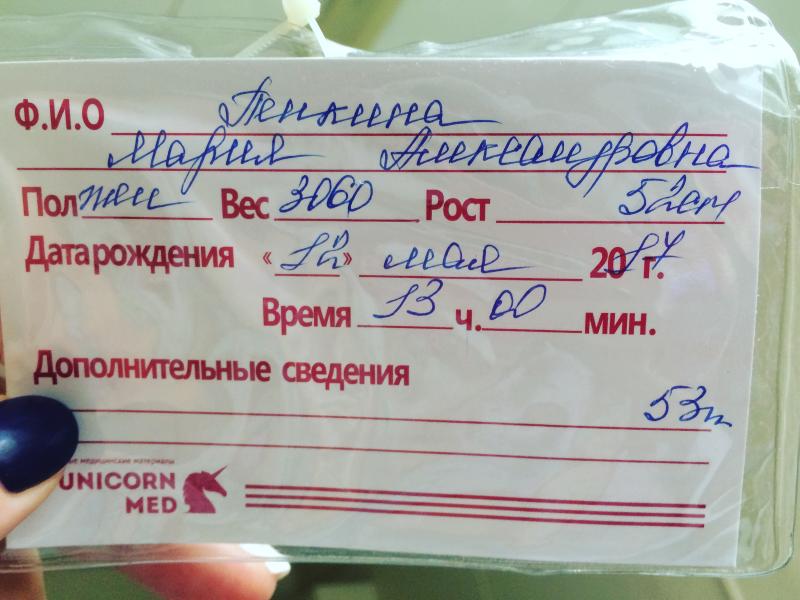 Ф.И.О Пенкина
Мария Александровна
Пол жен Вес 3060 Рост 52см
Дата рождения «12» мая 2017 г.
Время 13 ч. 00 мин.
Дополнительные сведения
53
медицинские материалы
UNICORN
MED